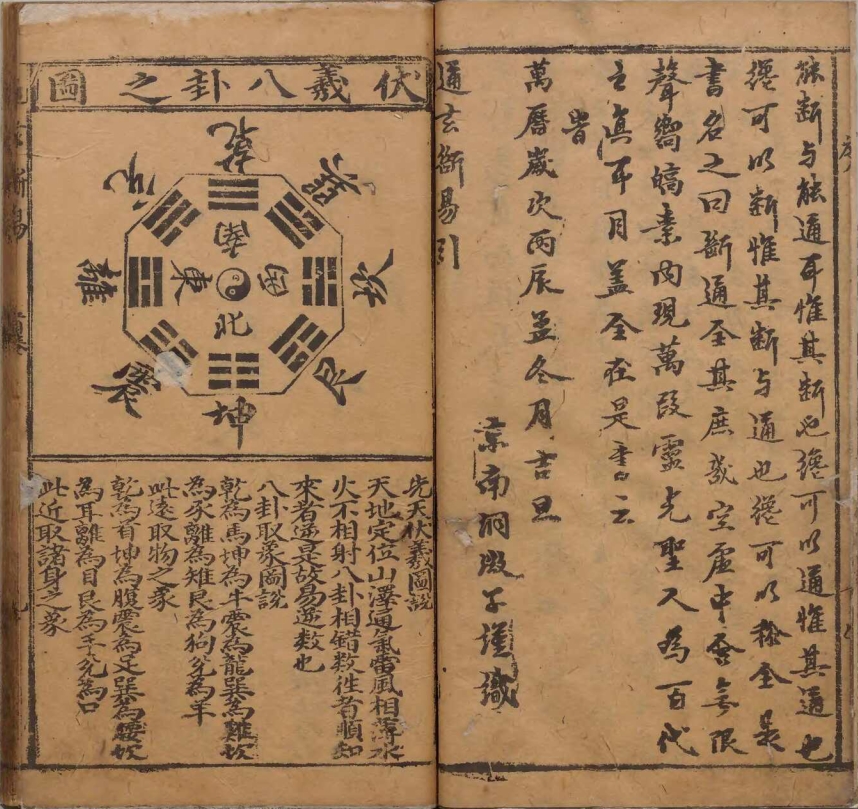 能斷與能通耳惟其斷也纔可以通惟其通也
纔可以斷惟其斷与通也纔可以称全是
書名之曰斷通全其庶㡬空虛中含無限
聲嚮縞素內現萬段靈光聖人為百代
立眞耳目盖全在是書云
旹
萬曆歲次丙辰孟冬月吉旦
子謹識
通玄斷易引
伏羲八卦之圖
乾
兌 巽
南
離 東 西 坎
北
震 艮
坤
先天伏羲圖說
天地定位山澤通氣雷風相薄水
火不相射八卦相錯数往者順知
來者逆是故易逆数也
八卦取象圖說
乾為馬坤為牛震為龍巽為雞坎
為豕離為雉艮為狗兌為羊
此遠取物之象
乾為首坤為腹震為足巽為腰坎
為耳離為目艮為手兌為口
此近取諸身之象